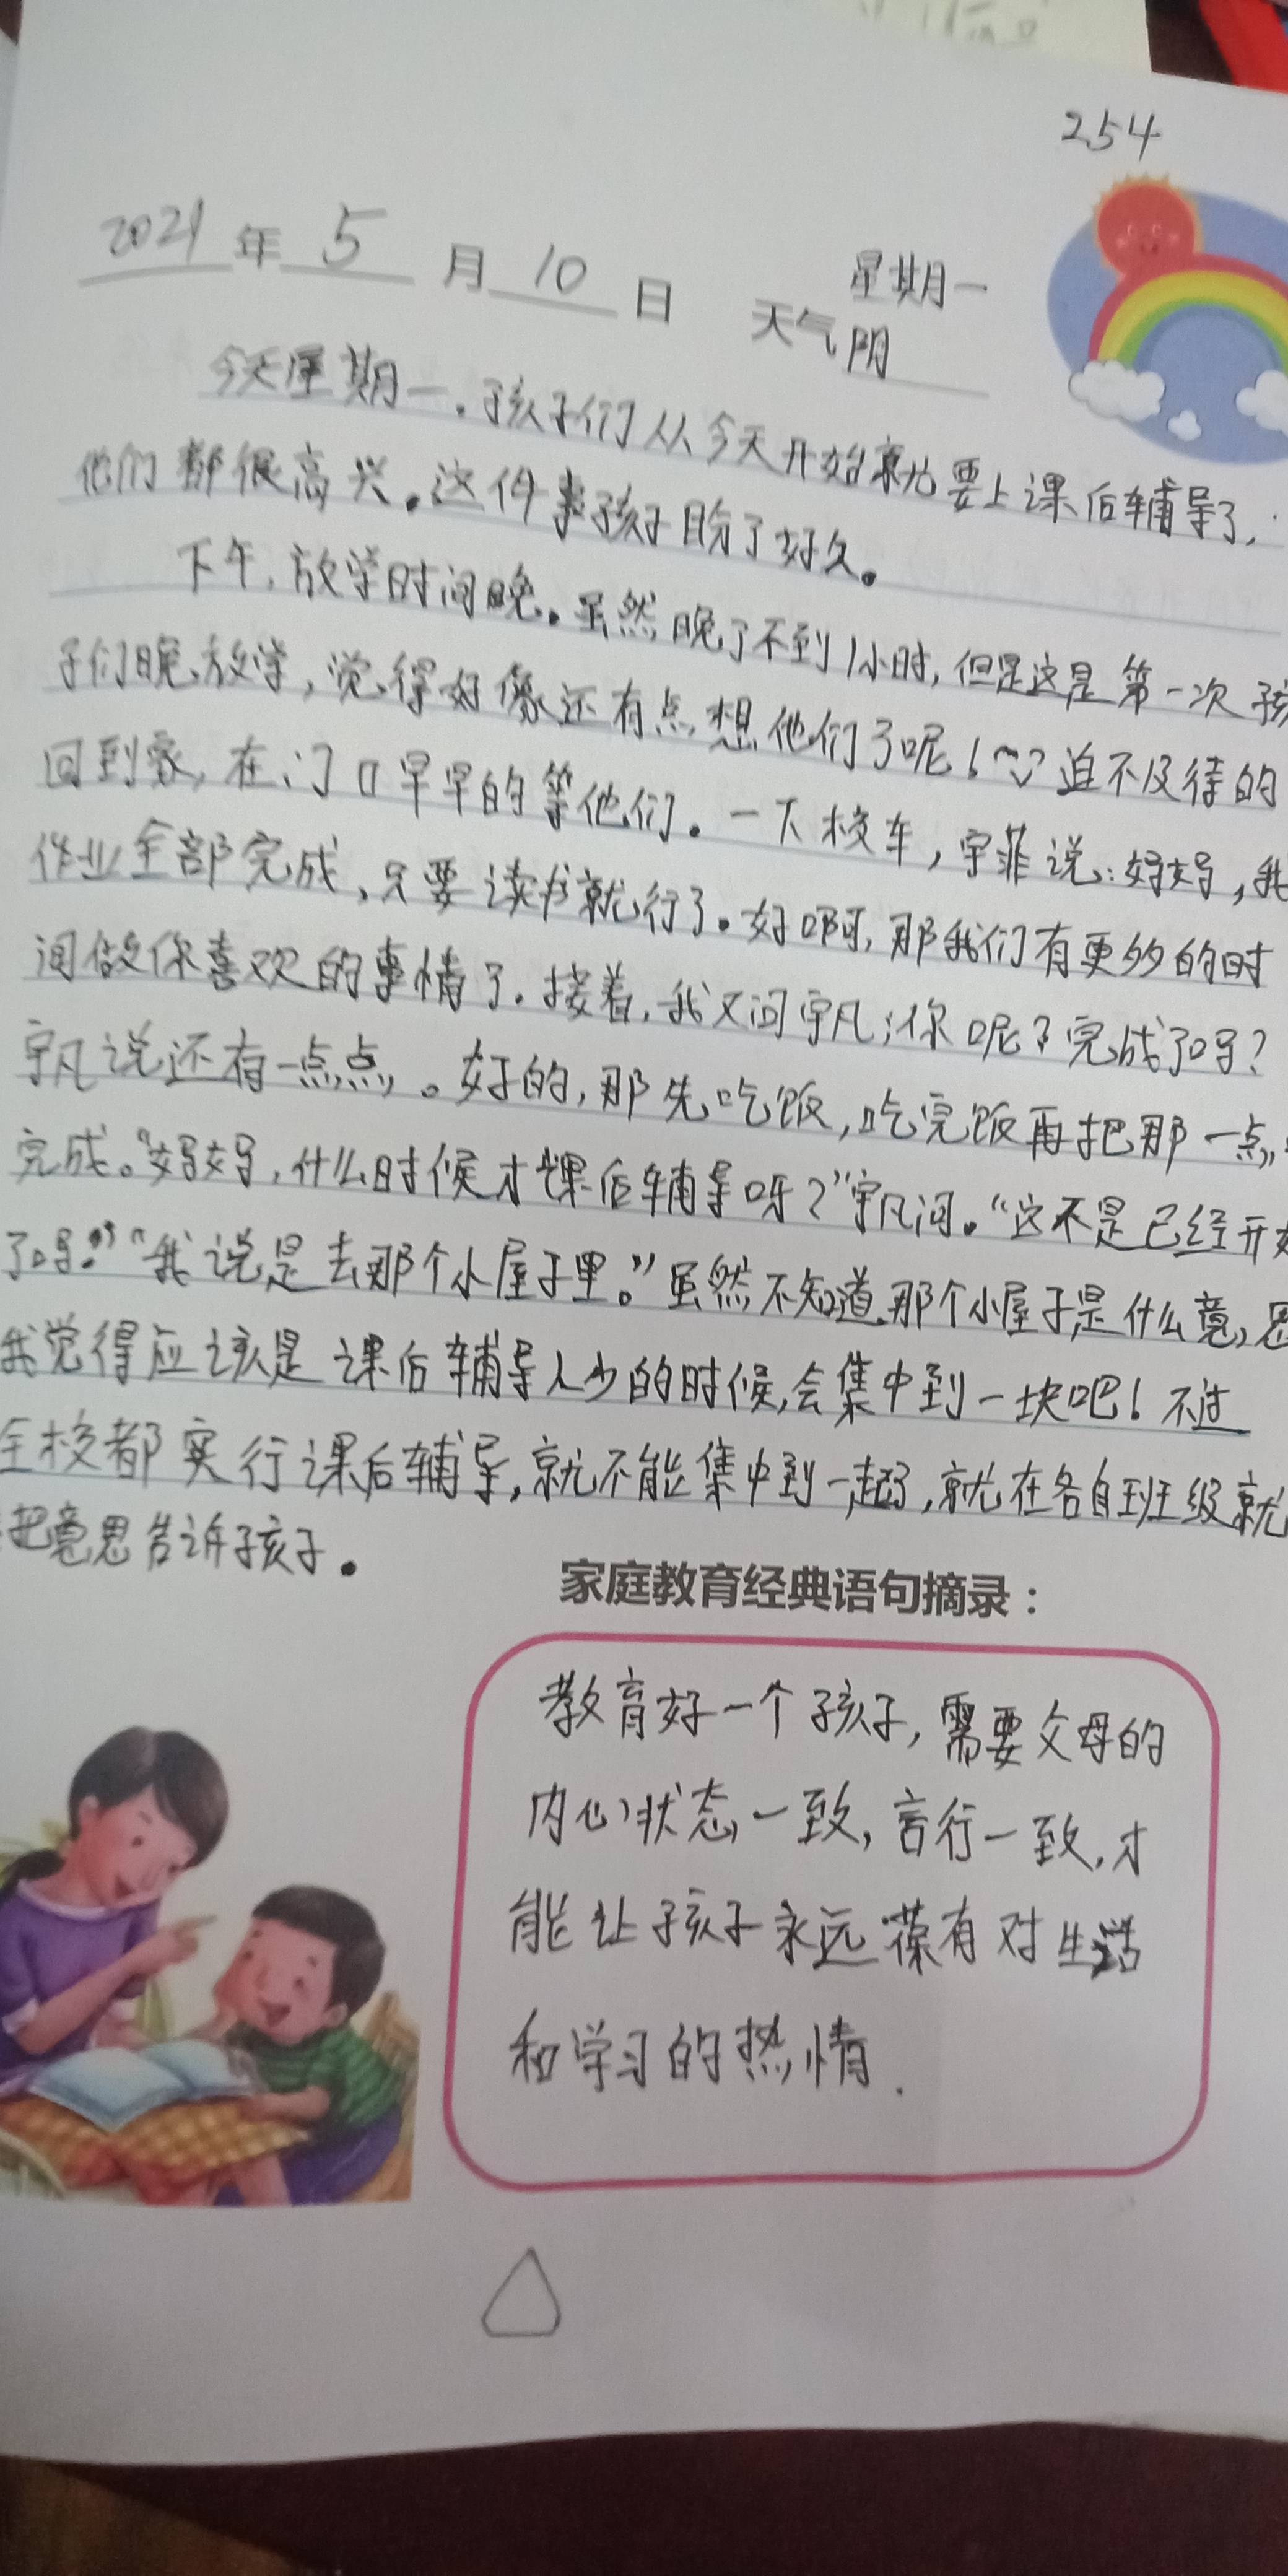 254
2021年5月10日 天气 星期一 阴
今天星期一,孩子们从今天开始就要上课后辅导了,
他们都很高兴。这件事孩子盼了好久。
下午,放学时间晚。虽然晚了不到1小时,但是这是第一次孩
子们晚放学,觉得好像还有点想他们了呢!迫不及待的
回到家,在门口早早的等他们。一下校车,宇菲说:妈妈,我
作业全部完成,只要读书就行了。好啊,那我们有更多的时
间做你喜欢的事情了。接着,我又问宇凡:你呢?完成了吗?
宇凡说还有一点点。好的,那先吃饭,吃完饭再把那一点
完成。“妈妈,什么时候才课后辅导呀?”宇凡问。“这不是已经开始
了吗?”“我说是去那个小屋子里。”虽然不知道那个小屋子是什么意思
我觉得应该是课后辅导人少的时候,会集中到一块吧!不过
全校都实行课后辅导,就不能集中到一起了,就在各自班级就
把意思告诉孩子。
家庭教育经典语句摘录:
教育好一个孩子,需要父母的
内心状态一致,言行一致,才
能让孩子永远葆有对生活
和学习的热情.